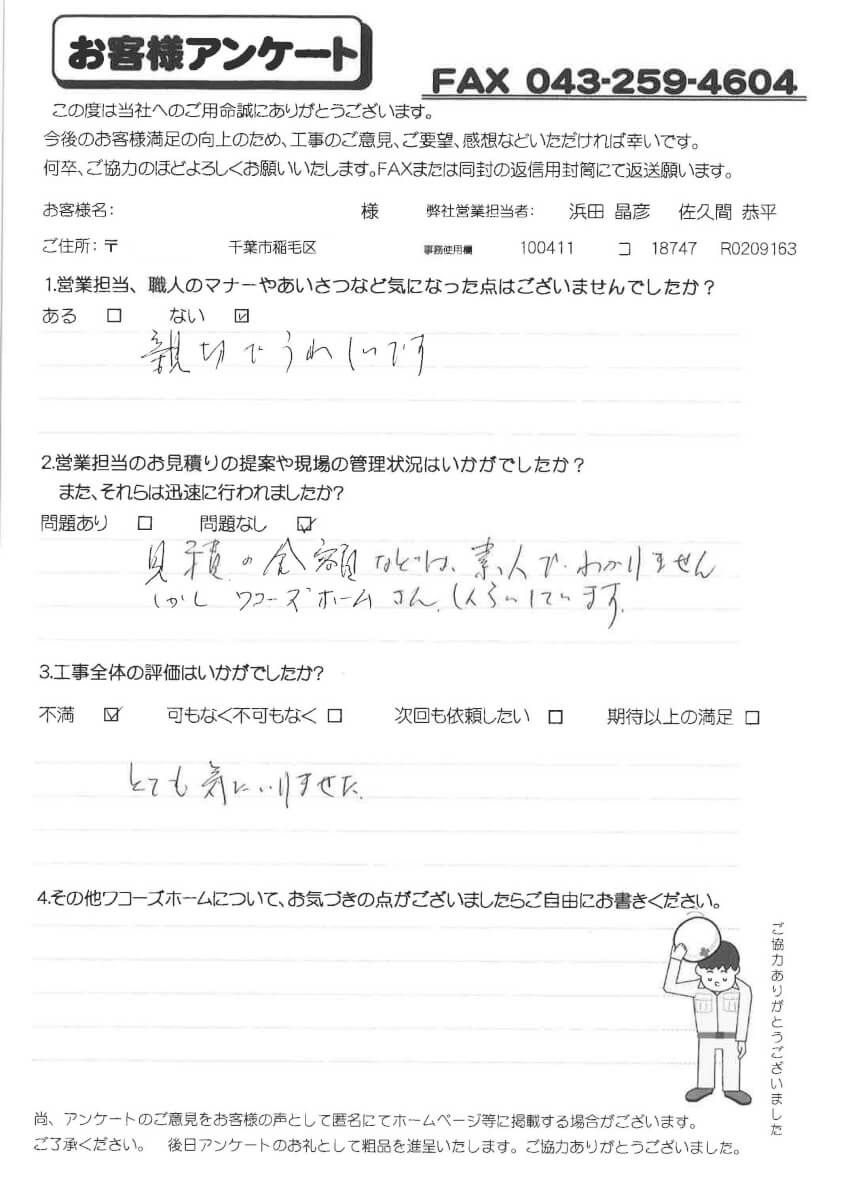 お客様アンケート
FAX 043-259-4604
この度は当社へのご用命誠にありがとうございます。
今後のお客様満足の向上のため、工事のご意見、ご要望、感想などいただければ幸いです。
何卒、ご協力のほどよろしくお願いいたします。FAXまたは同封の返信用封筒にて返送願います。
お客様名: 様 弊社営業担当者: 浜田 晶彦 佐久間 恭平
ご住所:〒 千葉市稲毛区 事務使用欄 100411 コ 18747 R0209163
1.営業担当、職人のマナーやあいさつなど気になった点はございませんでしたか?
ある □ ない ☑
親切でうれしいです
2.営業担当のお見積りの提案や現場の管理状況はいかがでしたか?
また、それらは迅速に行われましたか?
問題あり □ 問題なし ☑
見積の金額などは、素人でわかりません
しかしワコーズホームさん、しんらいしています。
3.工事全体の評価はいかがでしたか?
不満 ☑ 可もなく不可もなく □ 次回も依頼したい □ 期待以上の満足 □
とても気にいりませた。
4.その他ワコーズホームについて、お気づきの点がございましたらご自由にお書きください。
ご協力ありがとうございました
尚、アンケートのご意見をお客様の声として匿名にてホームページ等に掲載する場合がございます。
ご了承ください。 後日アンケートのお礼として粗品を進呈いたします。ご協力ありがとうございました。